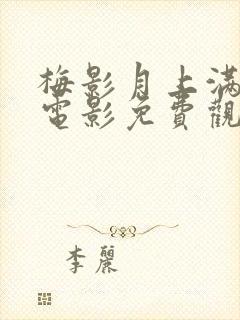 梅影月上滿
電影免費觀
李麗